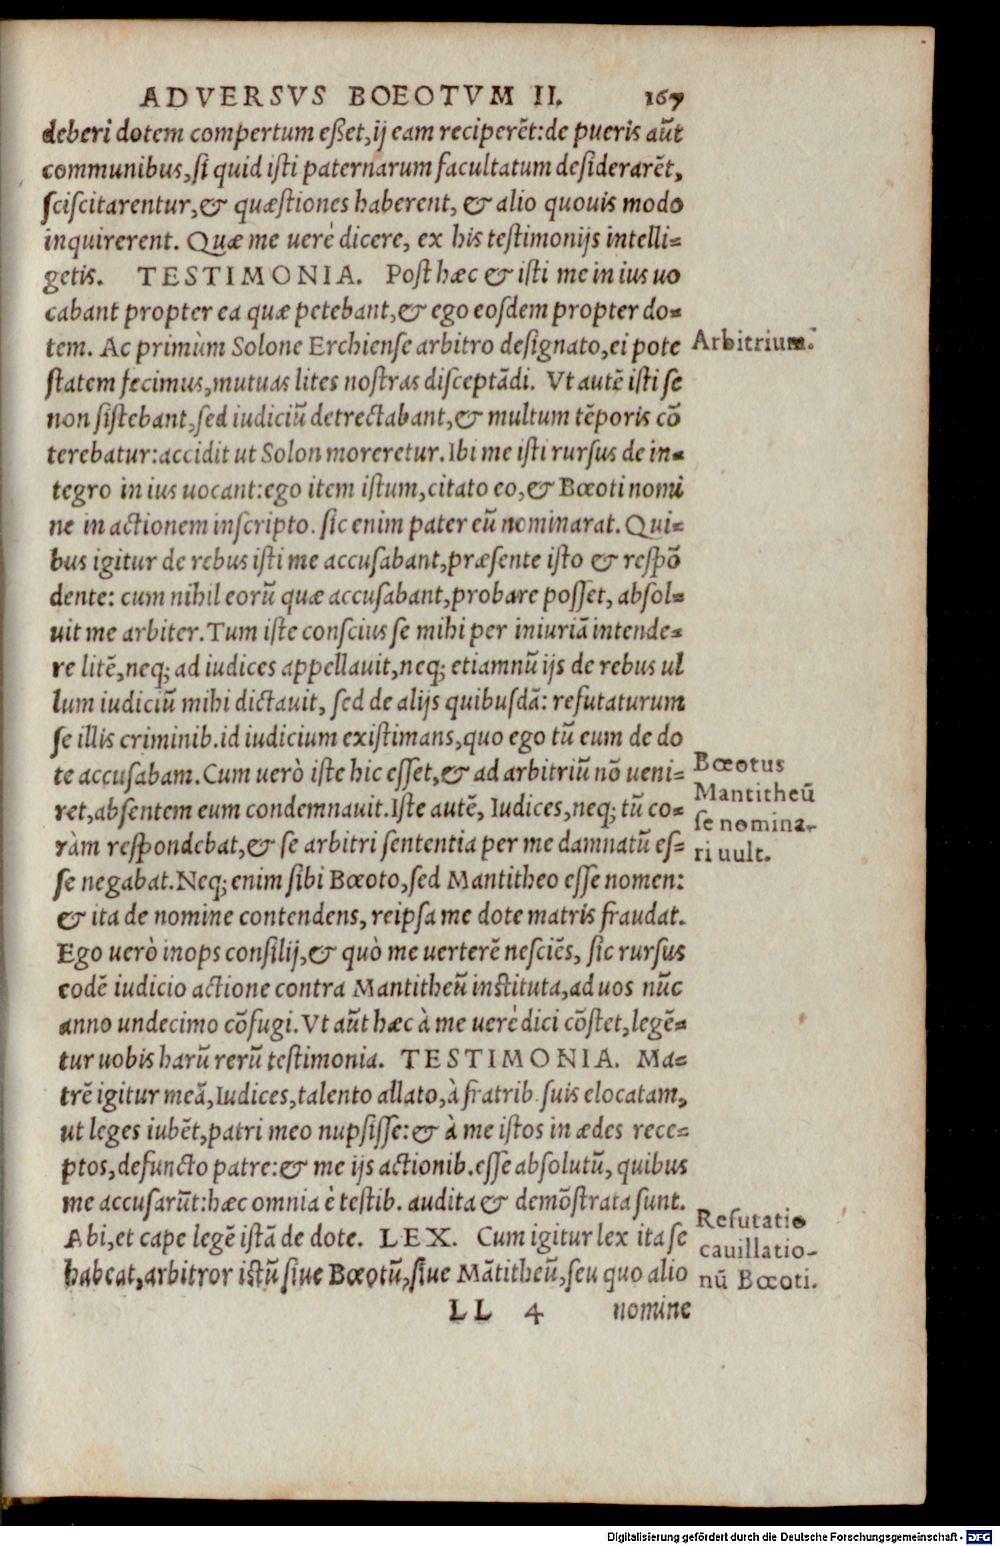 ADVERSVS BOEOTVM II. 167
deberi dotem compertum eßet, ij eam reciperēt: de pueris aūt
communibus, si quid isti paternarum facultatum desiderarēt,
sciscitarentur, & quæstiones haberent, & alio quouis modo
inquirerent. Quæ me uerè dicere, ex his testimonijs intelli=
getis. TESTIMONIA. Post hæc & isti me in ius uo
cabant propter ea quæ petebant, & ego eosdem propter do=
tem. Ac primùm Solone Erchiense arbitro designato, ei pote
statem fecimus, mutuas lites nostras disceptādi. Vt autē isti se
non sistebant, sed iudiciū detrectabant, & multum tēporis cō
terebatur: accidit ut Solon moreretur. Ibi me isti rursus de in=
tegro in ius uocant: ego item istum, citato eo, & Bœoti nomi
ne in actionem inscripto. sic enim pater eū nominarat. Qui=
bus igitur de rebus isti me accusabant, præsente isto & respō
dente: cum nihil eorū quæ accusabant, probare posset, absol=
uit me arbiter. Tum iste conscius se mihi per iniuriā intende=
re litē, neq; ad iudices appellauit, neq; etiamnū ijs de rebus ul
lum iudiciū mihi dictauit, sed de alijs quibusdā: refutaturum
se illis criminib. id iudicium existimans, quo ego tū eum de do
te accusabam. Cum uerò iste hic esset, & ad arbitriū nō ueni=
ret, absentem eum condemnauit. Iste autē, Iudices, neq; tū co=
ràm respondebat, & se arbitri sententia per me damnatū es=
se negabat. Neq; enim sibi Bœoto, sed Mantitheo esse nomen:
& ita de nomine contendens, reipsa me dote matris fraudat.
Ego uerò inops consilij, & quò me uerterē nesciēs, sic rursus
eodē iudicio actione contra Mantitheū instituta, ad uos nūc
anno undecimo cōfugi. Vt aūt hæc à me uerè dici cōstet, legē=
tur uobis harū rerū testimonia. TESTIMONIA. Ma=
trē igitur meā, Iudices, talento allato, à fratrib. suis elocatam,
ut leges iubēt, patri meo nupsisse: & à me istos in ædes rece=
ptos, defuncto patre: & me ijs actionib. esse absolutū, quibus
me accusarūt: hæc omnia è testib. audita & demōstrata sunt.
Abi, et cape legē istā de dote. LEX. Cum igitur lex ita se
habeat, arbitror istū siue Bœotū, siue Mātitheū, seu quo alio
LL 4 nomine
Arbitrium.
Bœotus
Mantitheū
se nomina-
ri uult.
Refutatio
cauillatio-
nū Bœoti.
Digitalisierung gefördert durch die Deutsche Forschungsgemeinschaft - DFG